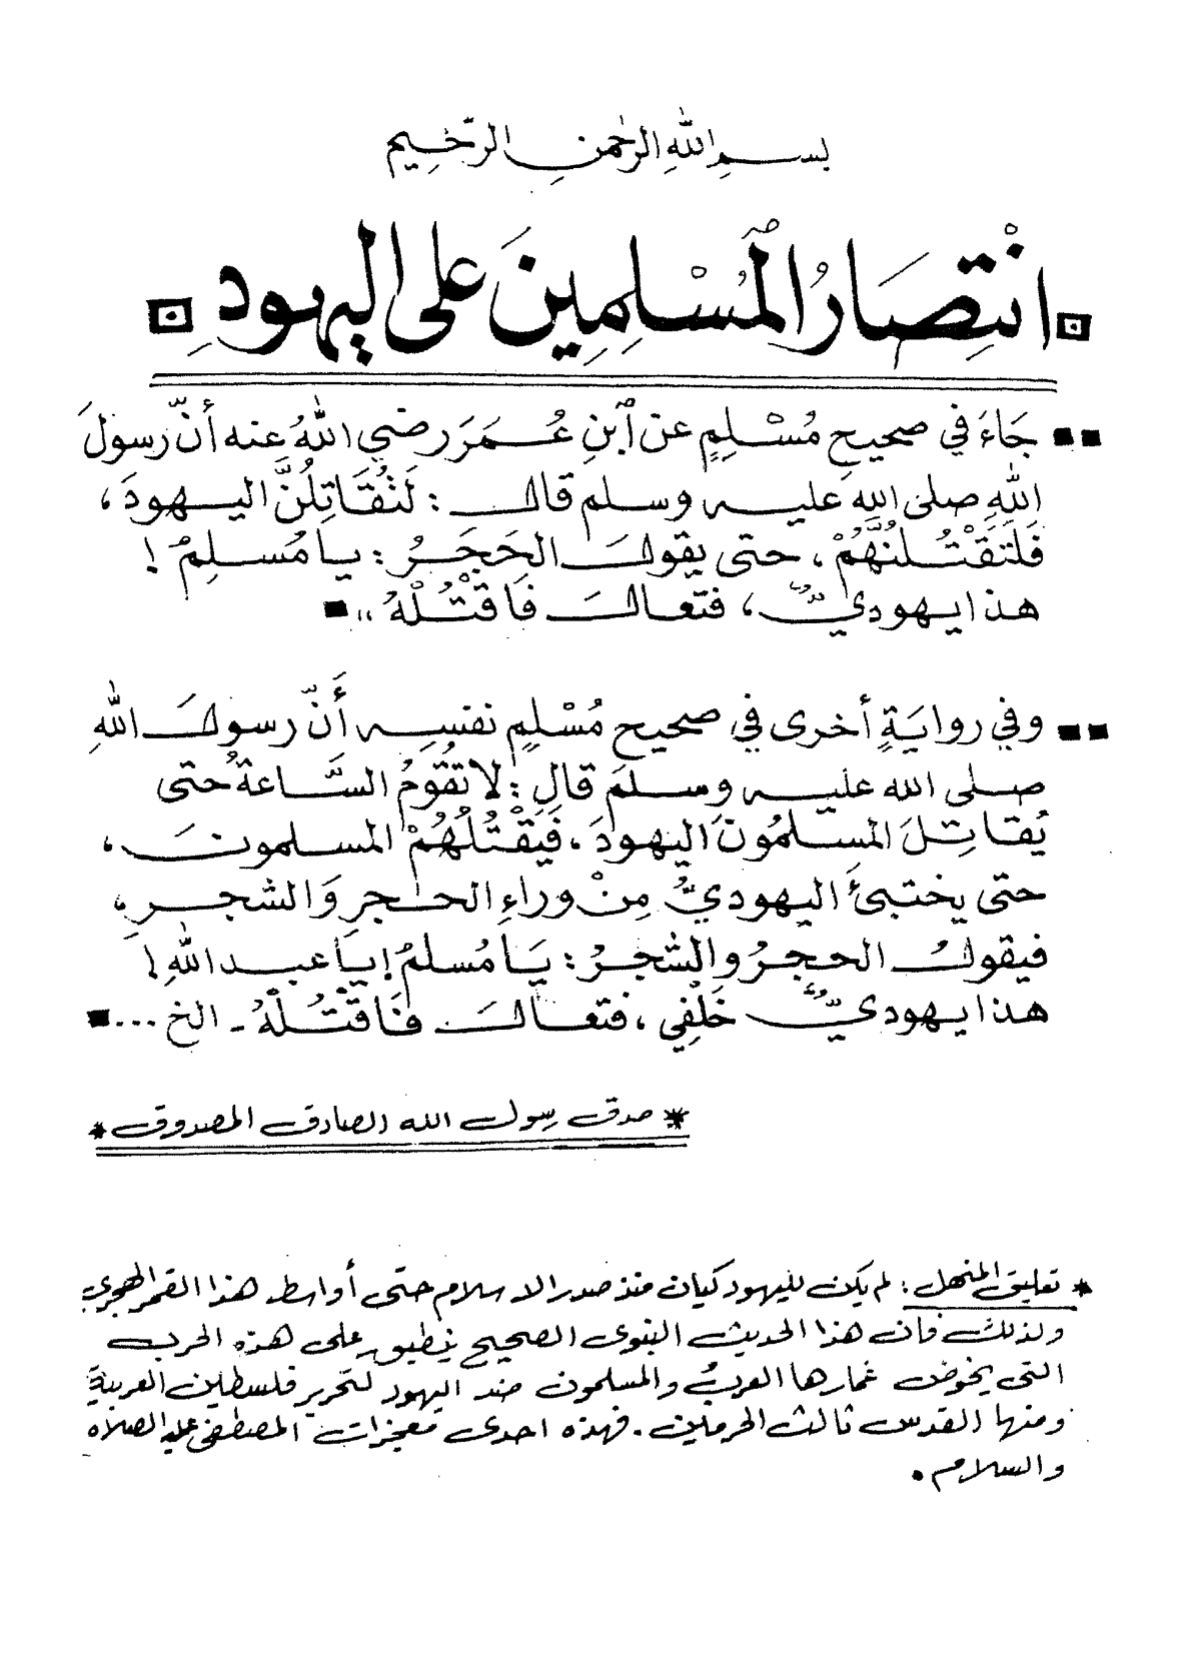 بسمِ اللهِ الرحمنِ الرَّحِيم
انْتِصَارُ الْمُسْلِمِينَ عَلى اليهودِ
جَاءَ في صحيحِ مُسْلِمٍ عن ابْنِ عُمَرَ رضي اللهُ عنه أنَّ رسولَ
اللهِ صلى اللهَ عليه وسلم قال : لَتُقَاتِلُنَّ اليهودَ ،
فَلَتَقْتُلُنَّهُمْ ، حتى يقولَ الحَجَرُ : يا مُسلِمُ !
هذا يهوديٌّ ، فتعالَ فَاقْتُلْهُ ،،
وفي روايَةٍ أخرى في صحيحِ مُسْلِمٍ نفسِه أَنَّ رسولَ اللهِ
صلى الله عليه وسلمَ قالِ : لا تَقُومُ السَّاعةُ حتى
يُقاتِلَ المسلمُونَ اليهودَ ، فَيَقْتُلُهُمْ المسلمونَ ،
حتى يختبئَ اليهوديُّ مِنْ وراءِ الحجرِ وَالشجرِ ،
فيقولُ الحجرُ والشجرُ : يَا مُسلمُ ! يَا عبدَ اللهِ !
هذا يهوديٌّ خَلْفِي ، فتعالَ فَاقْتُلْهُ - الخ ...
* صدق رسول الله الصادق المصدوق *
* تعليق المنهل : لم يكن لليهود كيان منذ صدر الاسلام حتى أواسط هذا القمر الهجري
ولذلك فان هذا الحديث النبوى الصحيح ينطبق على هذه الحرب
التى يخوض غمارها العربُ والمسلمون ضد اليهود لتحرير فلسطين العربيةِ
ومنها القدس ثالث الحرمين . فهذه احدى معجزات المصطفى عليه الصلاة
والسلام .